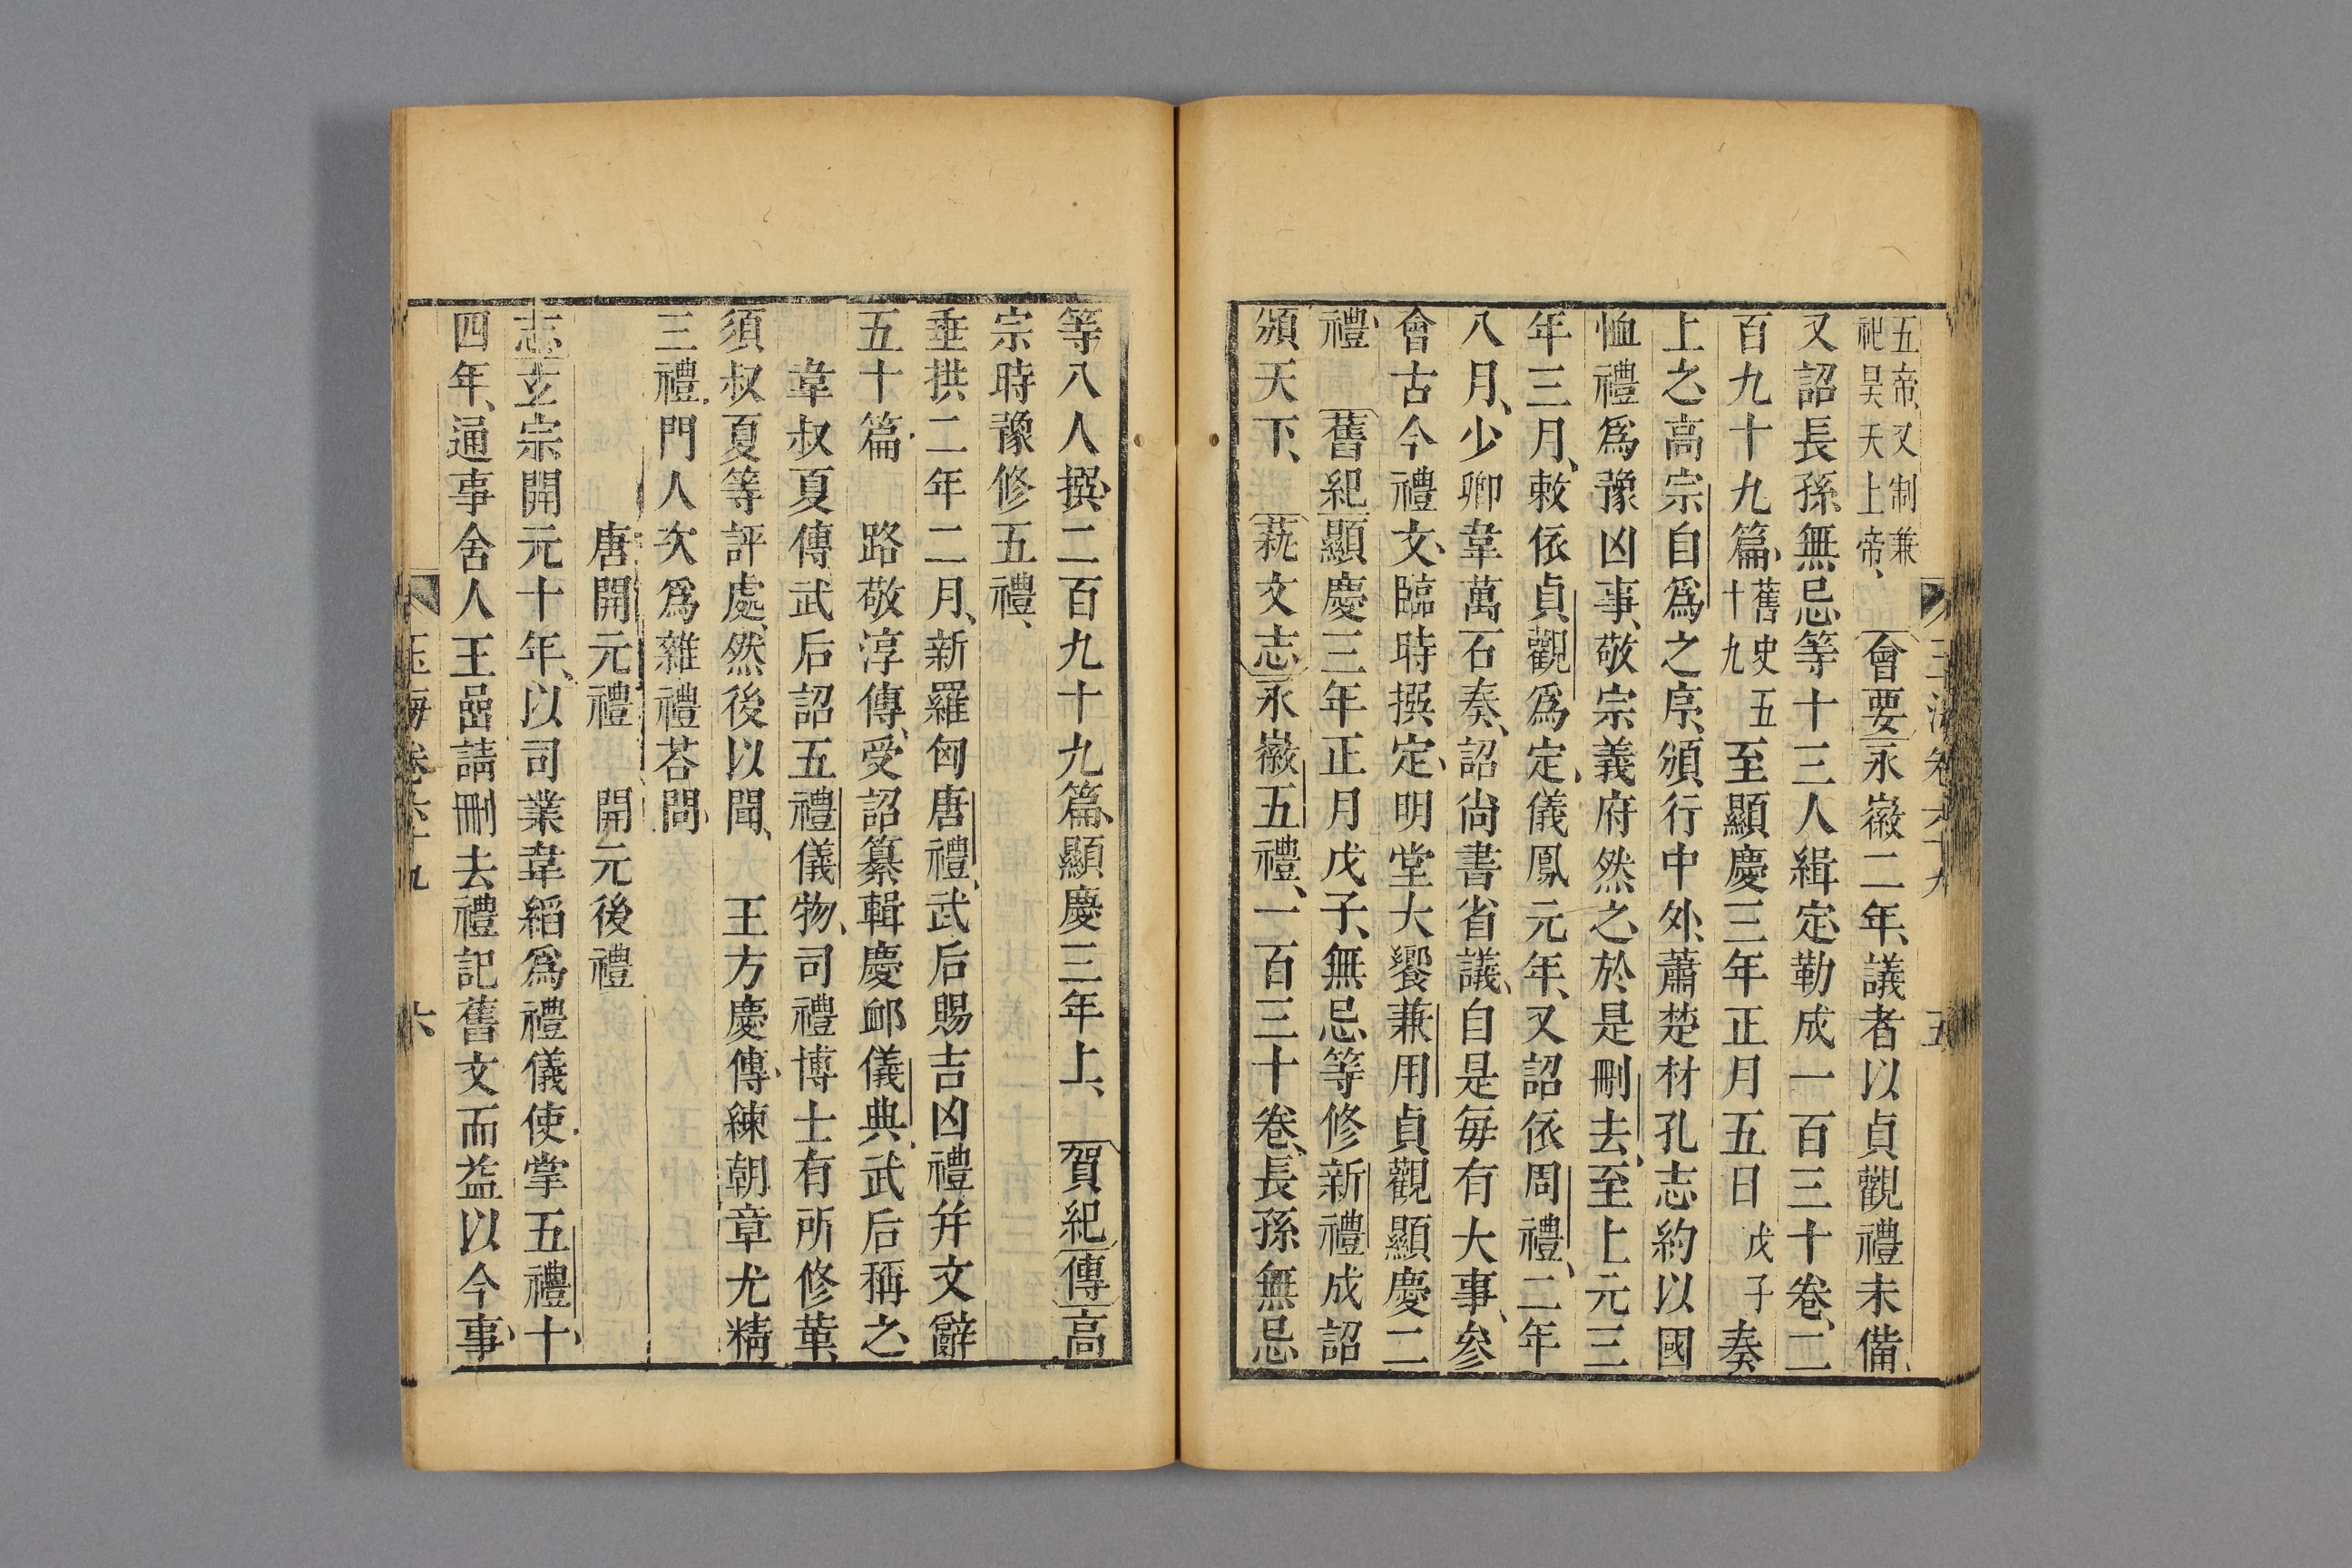 五帝、又制兼
祀昊天上帝、
會要永徽二年、議者以貞觀禮未備、
又詔長孫無忌等十三人緝定、勒成一百三十卷、二
百九十九篇、舊史五十九至顯慶三年正月五日戊子奏
上之、高宗自爲之序、頒行中外、蕭楚材孔志約以國
恤禮爲豫凶事、敬宗義府然之、於是刪去、至上元三
年三月、敕依貞觀爲定、儀鳳元年、又詔依周禮、二年
八月、少卿韋萬石奏、詔尚書省議、自是每有大事、參
會古今禮文、臨時撰定、明堂大饗兼用貞觀顯慶二
禮、 舊紀顯慶三年正月戊子、無忌等修新禮成詔
頒天下、 蓺文志永徽五禮、一百三十卷、長孫無忌
五
等八人撰、二百九十九篇、顯慶三年上、 賀紀傳高
宗時豫修五禮、
垂拱二年二月、新羅匈唐禮、武后賜吉凶禮幷文辭
五十篇、 路敬淳傳、受詔纂輯慶卹儀典、武后稱之、
韋叔夏傳武后詔五禮儀物、司禮博士有所修革、
須叔夏等評處、然後以聞、 王方慶傳、練朝章尤精
三禮、門人次爲雜禮荅問、
唐開元禮 開元後禮
志玄宗開元十年、以司業韋縚爲禮儀使、掌五禮、十
四年、通事舍人王嵒請刪去禮記舊文而益以今事、
玉海卷六十九 六